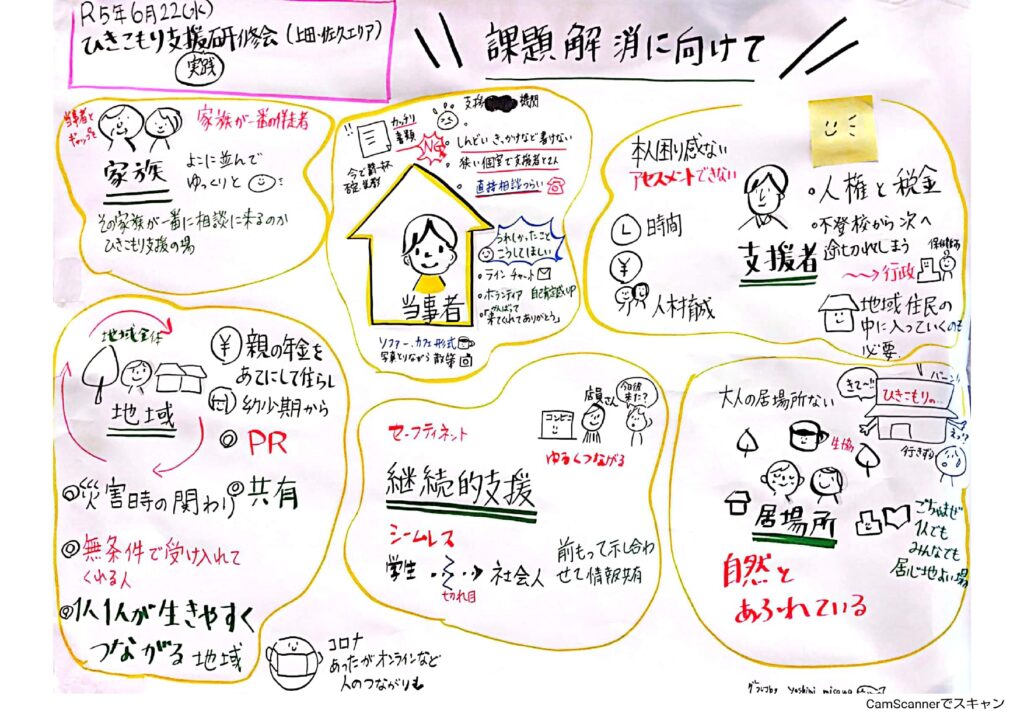 R5年6月22(水)
ひきこもり支援研修会(上田・佐久エリア)
実践
課題解消に向けて
当事者と
ギャップも
家族が一番の伴走者
家族
よこに並んで
ゆっくりと
その家族が一番に相談に来るのが
ひきこもり支援の場
支援
機関
!!
カッチリ
書類
NG
しんどい きっかけなど書けない
狭い個室で支援者と2人
直接相談つらい
今で精一杯
うれしかったこと
こうしてほしい
ライン チャート
ボランティア 自己肯定感UP
「がんばって
来てくれてありがとう」
当事者
ソファー、カフェ形式
写真とりながら 散策
本人困り感ない
アセスメントできない
時間
¥
人材育成
支援者
人権と税金
不登校から次へ
途切れてしまう
行政
地域住民の
中に入っていくのも
必要
地域全体
地域
¥
親の年金を
あてにして暮らし
幼少期から
PR
災害時の関わり
共有
無条件で受け入れて
くれる人
1人1人が生きやすく
つながる地域
セーフティネット
コンビニ
店員さん
今日彼
来た?
ゆるくつながる
継続的支援
シームレス
学生
社会人
切れ目
前もって示し合わ
せて情報共有
大人の居場所ない
きて〜!!
バーン!
ひきこもりの…
えっ!?
行きずらい
生協
居場所
ごちゃまぜ
1人でも
みんなでも
居心地よい場
自然と
あふれている
コロナ
あったがオンラインなど
人のつながりも
グラレコby yoshimi
CamScannerでスキャン